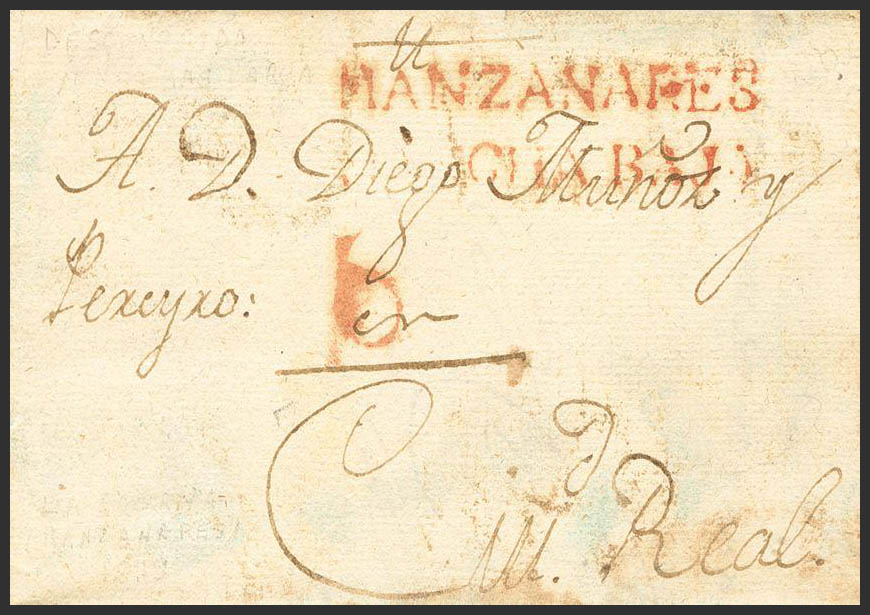 MANZANARES
A. D. Diego Muñoz y
Pereyro:
en
Ciu.d Real.